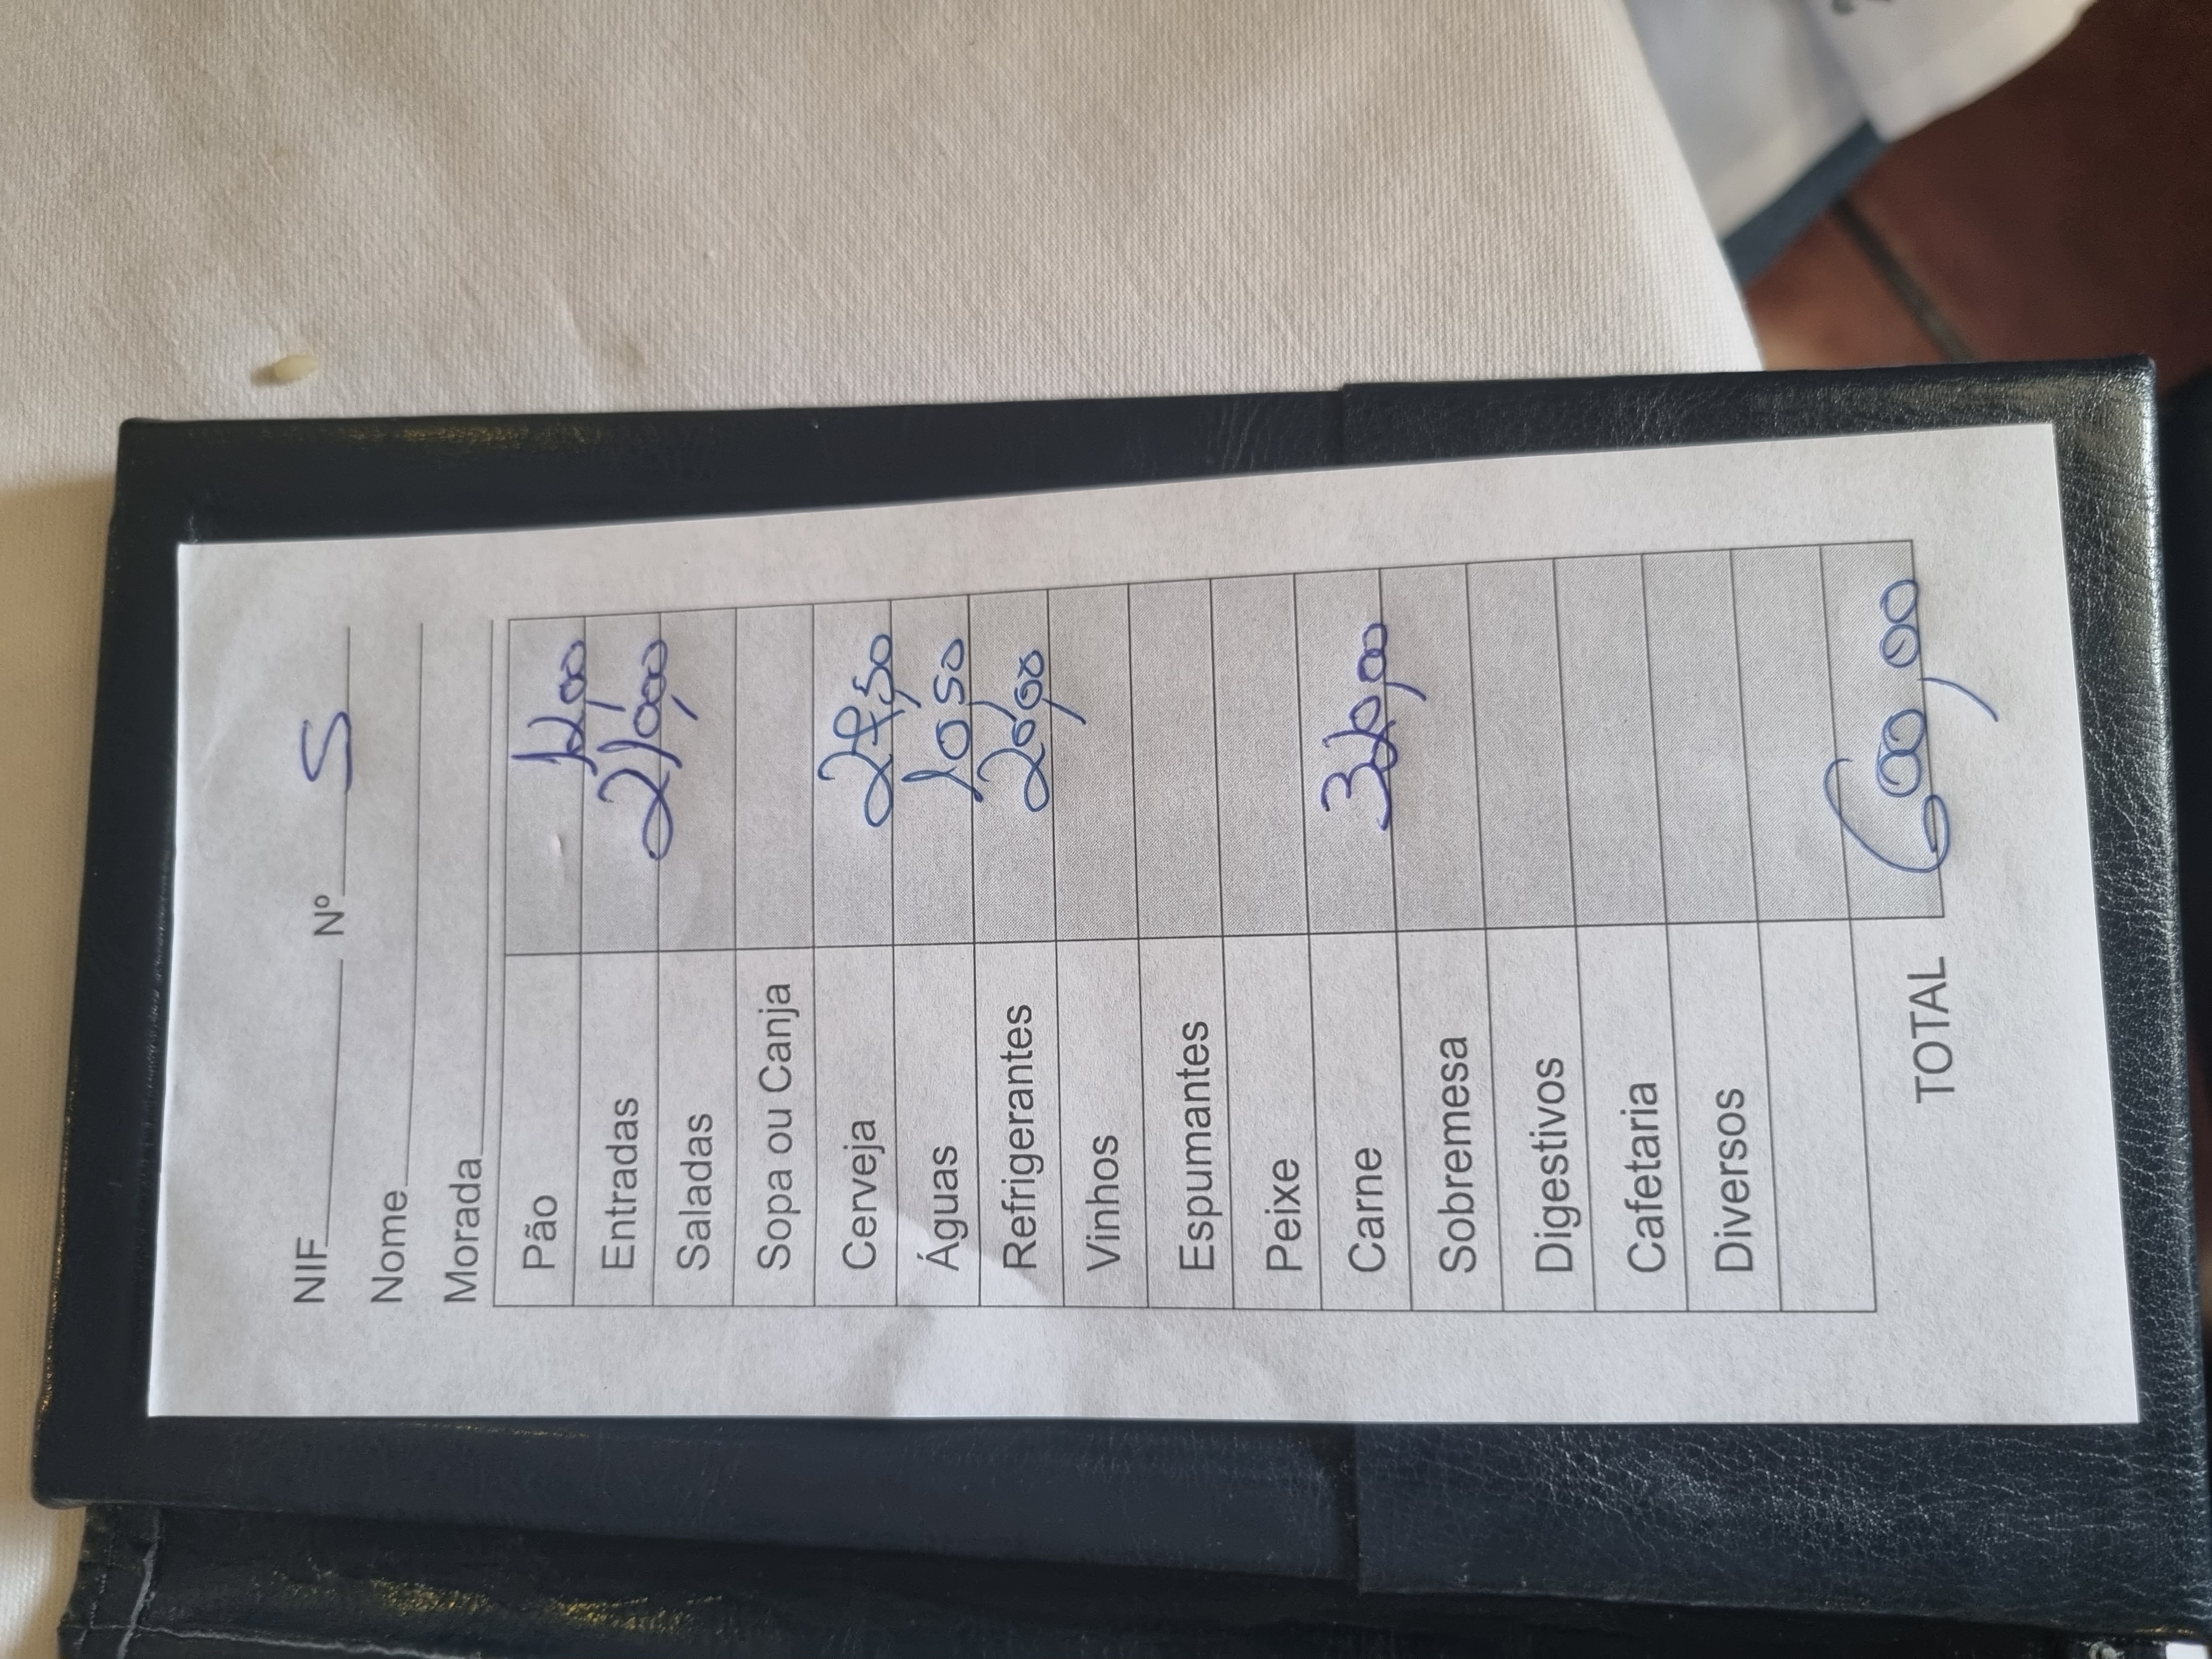 NIF Nº 5
Nome
Morada
Pão 12,00
Entradas 210,00
Saladas
Sopa ou Canja
Cerveja 27,50
Águas 10,50
Refrigerantes 20,00
Vinhos
Espumantes
Peixe
Carne 320,00
Sobremesa
Digestivos
Cafetaria
Diversos
TOTAL 600,00